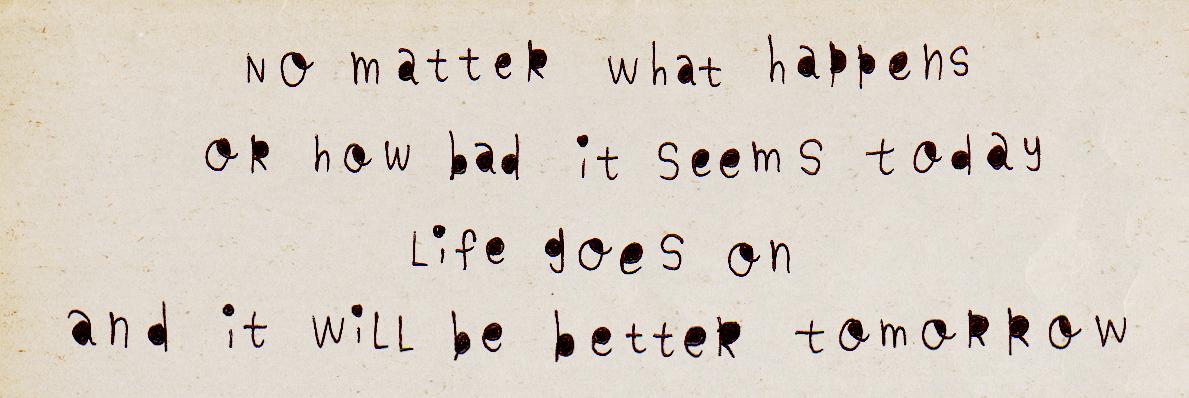 No matter what happens
or how bad it seems today
Life goes on
and it will be better tomorrow